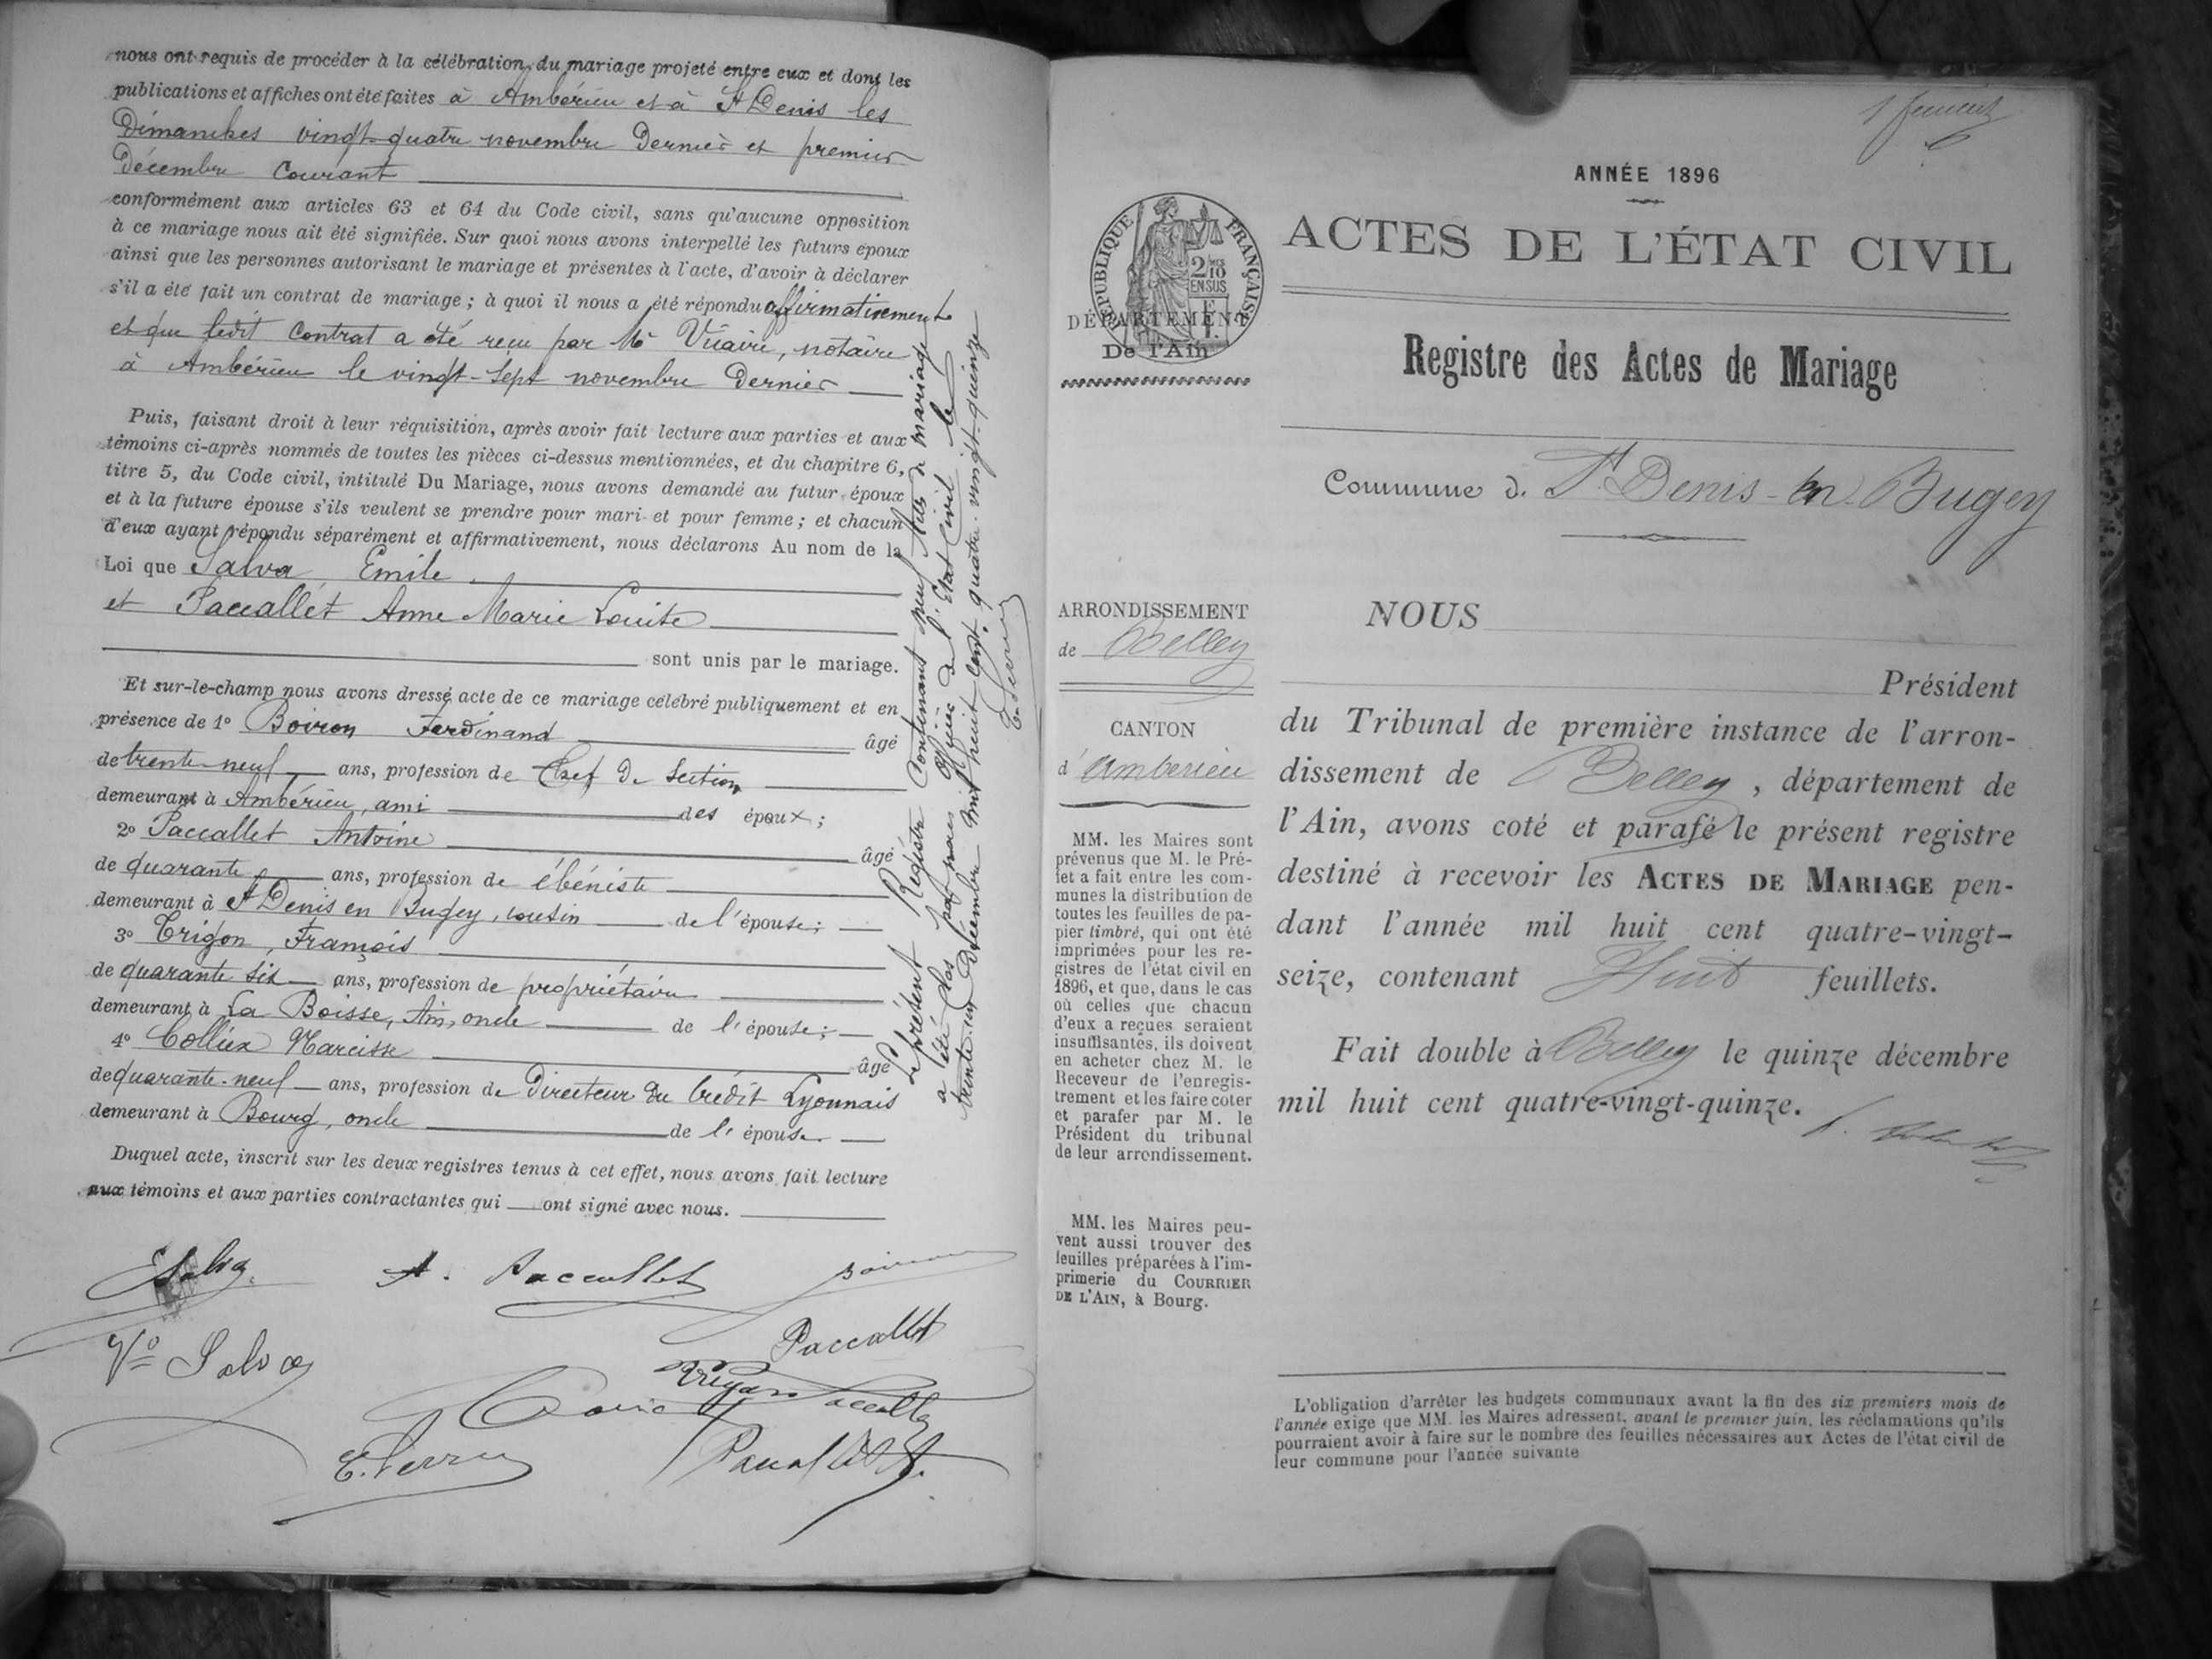 nous ont requis de procéder à la célébration du mariage projeté entre eux et dont les
publications et affiches ont été faites à Ambérieu et à St Denis les
Dimanches vingt-quatre novembre Dernier et premier
Décembre Courant
conformément aux articles 63 et 64 du Code civil, sans qu'aucune opposition
à ce mariage nous ait été signifiée. Sur quoi nous avons interpellé les futurs époux
ainsi que les personnes autorisant le mariage et présentes à l'acte, d'avoir à déclarer
s'il a été fait un contrat de mariage ; à quoi il nous a été répondu affirmativement
et que ledit Contrat a été reçu par Me notaire
à Ambérieu le vingt-sept novembre Dernier
Puis, faisant droit à leur réquisition, après avoir fait lecture aux parties et aux
témoins ci-après nommés de toutes les pièces ci-dessus mentionnées, et du chapitre 6,
titre 5, du Code civil, intitulé Du Mariage, nous avons demandé au futur époux
et à la future épouse s'ils veulent se prendre pour mari et pour femme ; et chacun
d'eux ayant répondu séparément et affirmativement, nous déclarons Au nom de la
Loi que Salva Emile
et Paccallet Anne Marie Louise
sont unis par le mariage.
Et sur-le-champ nous avons dressé acte de ce mariage célébré publiquement et en
présence de 1° Boiron Ferdinand âgé
de trente-neuf ans, profession de Chef De Section
demeurant à Ambérieu, ami des époux ;
2° Paccallet Antoine âgé
de quarante ans, profession de ébéniste
demeurant à St Denis en Bugey, cousin de l'épouse ;
3° Trigon, François
de quarante six ans, profession de propriétaire
demeurant à La Boisse, Ain, oncle de l'épouse ;
4° Collieix Narcisse âgé
de quarante-neuf ans, profession de Directeur du Crédit Lyonnais
demeurant à Bourg, oncle de l'épouse
Duquel acte, inscrit sur les deux registres tenus à cet effet, nous avons fait lecture
aux témoins et aux parties contractantes qui ont signé avec nous.
ESalva
A. Paccallet
Boiron
Vve Salva
Paccallet
Trigon
Paccallet
E. Perrin
Paccallet
Le présent Registre Contenant neuf Actes de mariage
a été clos par nous Officier de l'Etat Civil le
trente-un Décembre mil huit cent quatre-vingt-quinze
E. Perrin
1 feuillet
ANNÉE 1896
RÉPUBLIQUE FRANÇAISE
2/10 EN SUS
DÉPARTEMENT
De l'Ain
ACTES DE L'ÉTAT CIVIL
Registre des Actes de Mariage
Commune de St Denis-en-Bugey
ARRONDISSEMENT
de Belley
CANTON
d'Ambérieu
MM. les Maires sont
prévenus que M. le Pré-
fet a fait entre les com-
munes la distribution de
toutes les feuilles de pa-
pier timbré, qui ont été
imprimées pour les re-
gistres de l'état civil en
1896, et que, dans le cas
où celles que chacun
d'eux a reçues seraient
insuffisantes, ils doivent
en acheter chez M. le
Receveur de l'enregis-
trement et les faire coter
et parafer par M. le
Président du tribunal
de leur arrondissement.
MM. les Maires peu-
vent aussi trouver des
feuilles préparées à l'im-
primerie du COURRIER
DE L'AIN, à Bourg.
NOUS
Président
du Tribunal de première instance de l'arron-
dissement de Belley, département de
l'Ain, avons coté et parafé le présent registre
destiné à recevoir les ACTES DE MARIAGE pen-
dant l'année mil huit cent quatre-vingt-
seize, contenant Huit feuillets.
Fait double à Belley le quinze décembre
mil huit cent quatre-vingt-quinze.
L'obligation d'arrêter les budgets communaux avant la fin des six premiers mois de
l'année exige que MM. les Maires adressent, avant le premier juin, les réclamations qu'ils
pourraient avoir à faire sur le nombre des feuilles nécessaires aux Actes de l'état civil de
leur commune pour l'année suivante